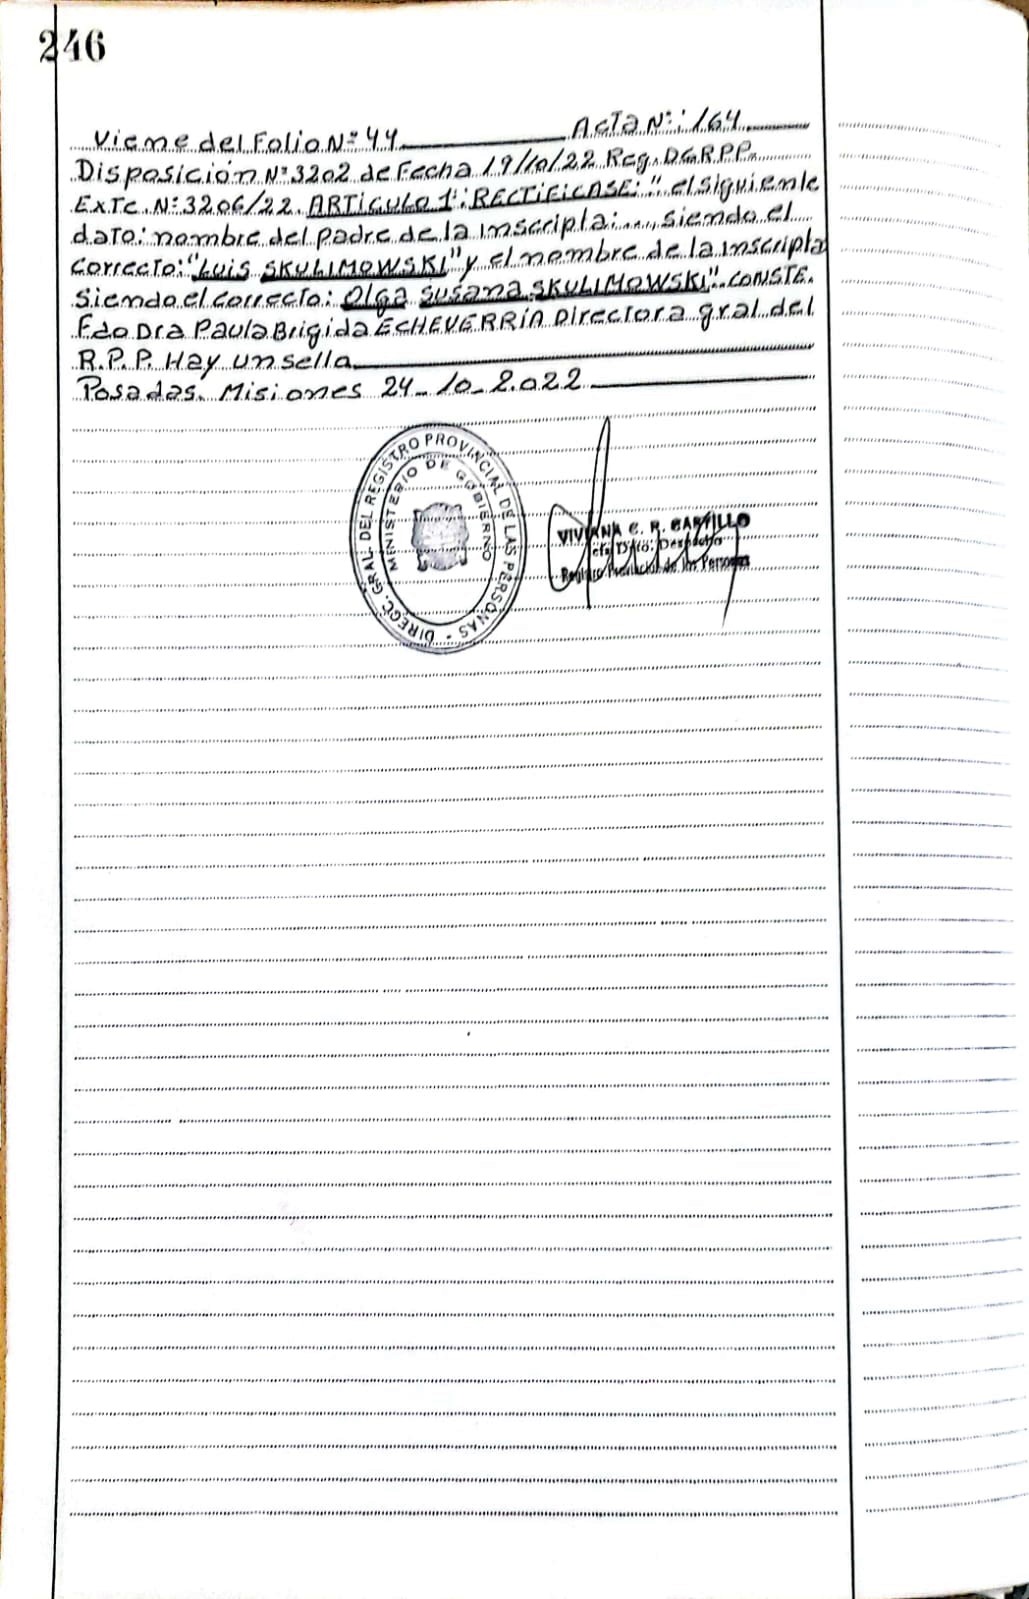 246
Viene del Folio Nº 44 Acta Nº: 164
Disposición Nº 3202 de Fecha 19/10/22 Reg. DGRPP.
Exte. Nº: 3206/22. ARTÍCULO 1º: RECTIFICASE: " el siguiente
dato: nombre del padre de la inscripta:..., siendo el
correcto: "Luis SKULIMOWSKI" y el nombre de la inscripta
siendo el correcto: Olga Susana SKULIMOWSKI". CONSTE.
Fdo Dra Paula Brigida ECHEVERRÍA Directora gral del
R.P.P. Hay un sello
Posadas. Misiones 24_10_2.022
DIREC. GRAL. DEL REGISTRO PROVINCIAL DE LAS PERSONAS -
MINISTERIO DE GOBIERNO
VIVIANA C. R. CASTILLO
Dpto. Despacho
Registro Provincial de las Personas